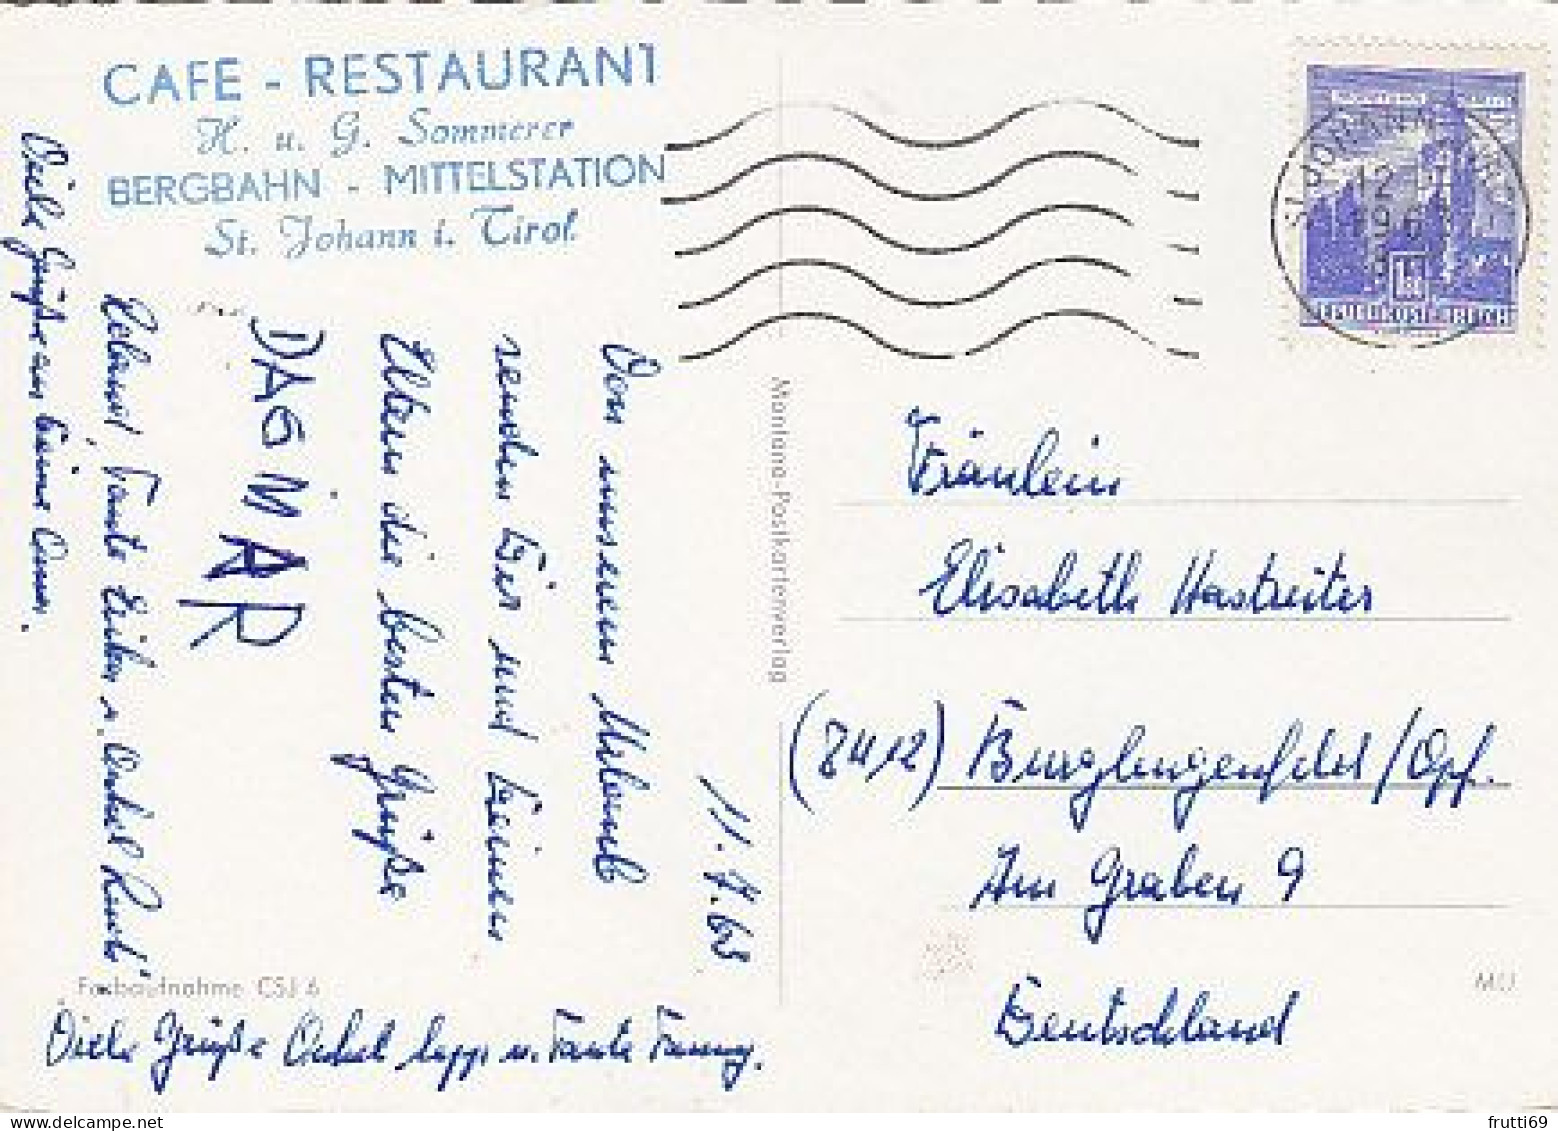 CAFE - RESTAURANT
H. u. G. Sommerer
BERGBAHN - MITTELSTATION
St. Johann i. Tirol
11.7.68
Von unserem Urlaub
senden Dir und Deinen
Eltern die besten Grüße
DAGMAR
Roland, Tante Erika u. Onkel Rudi
Viele Grüße von Deiner Oma.
Farbaufnahme CSJ 6
Viele Grüße Onkel Sepp u. Tante Fanny.
Montana-Postkartenverlag
ST. JOHANN
12
196
REPUBLIK ÖSTERREICH
Fräulein
Elisabeth Hastreiter
(8412) Burglengenfeld/Opf.
Am Graben 9
Deutschland
MU
frutti69